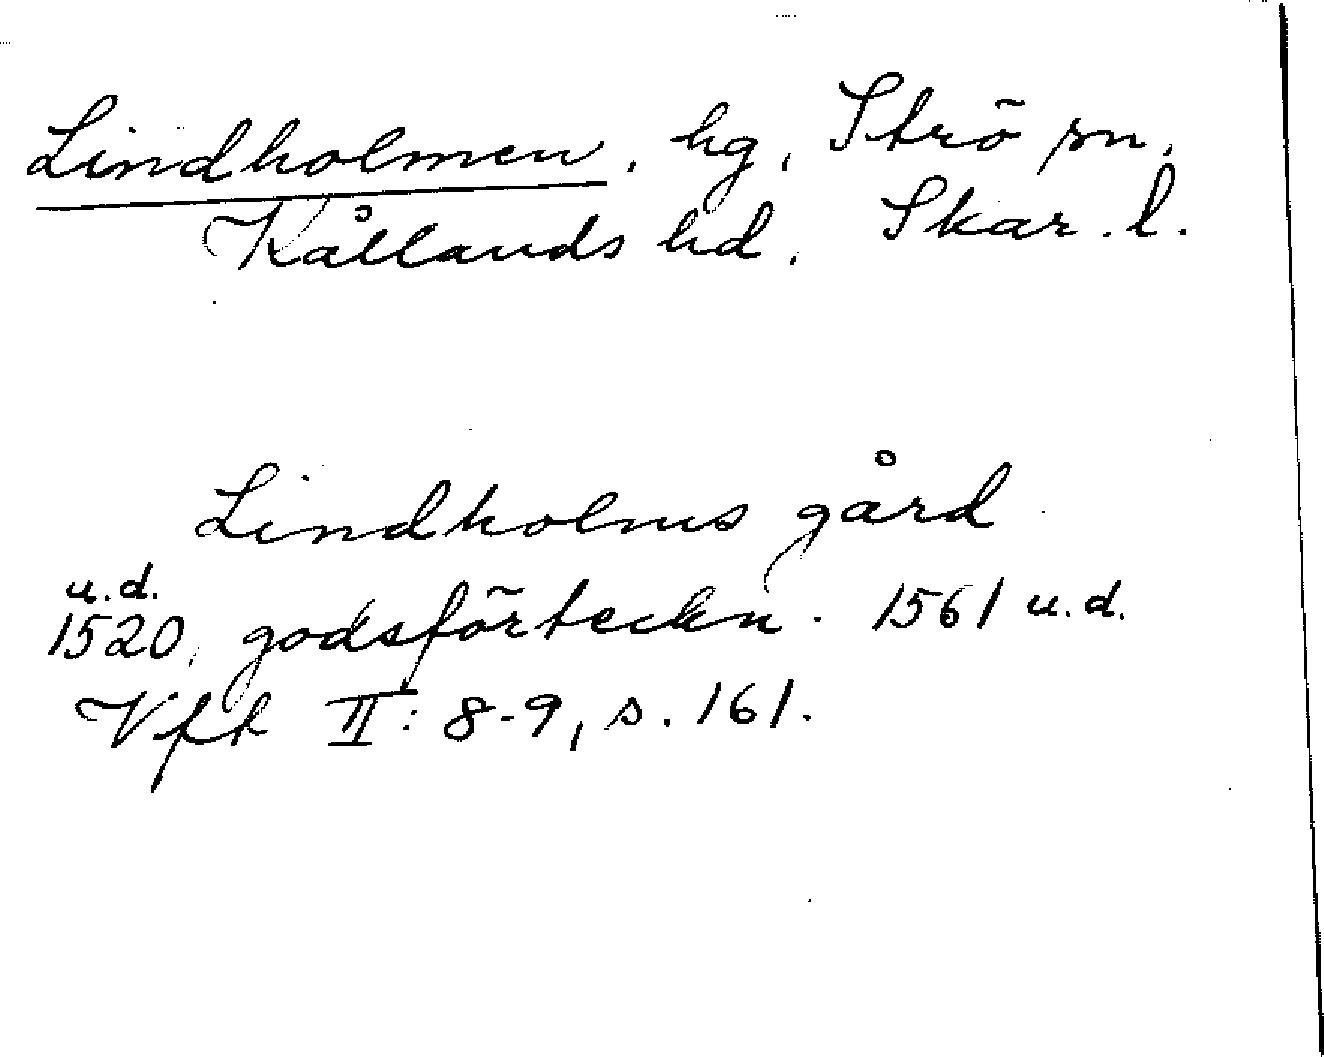 Lindholmen, hg, Strö sn,
Kållands hd, Skar. l.
Lindholms gård
u.d.
1520, godsförteckn. 1561 u.d.
Vft II: 8-9, s. 161.